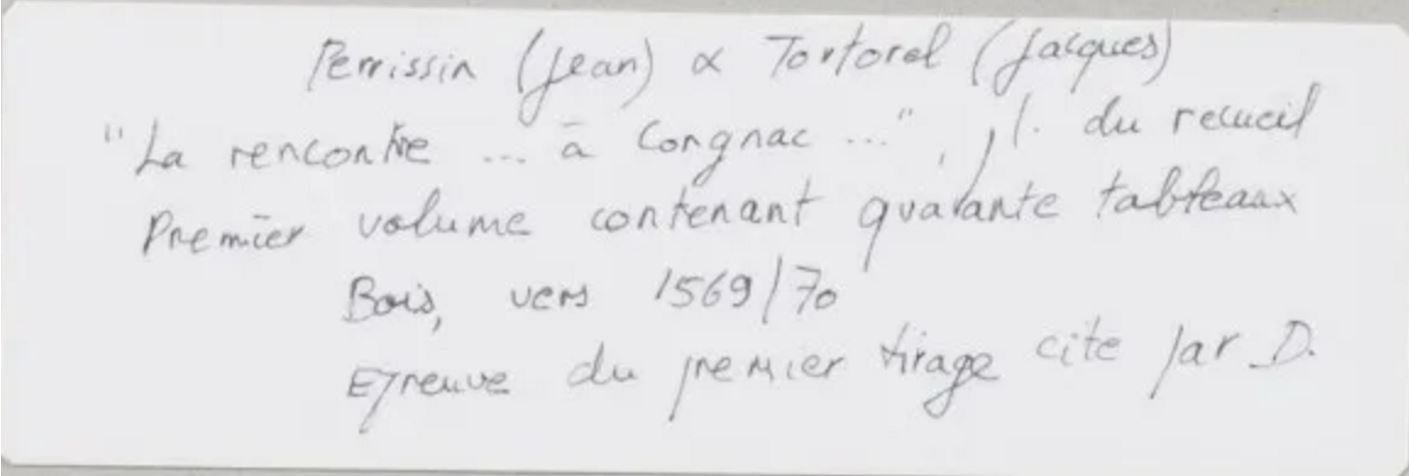 Perrissin (Jean) & Tortorel (Jacques)
"La rencontre ... à Congnac ...", pl. du recueil
Premier volume contenant quarante tableaux
Bois, vers 1569/70
Epreuve du premier tirage cite par D.